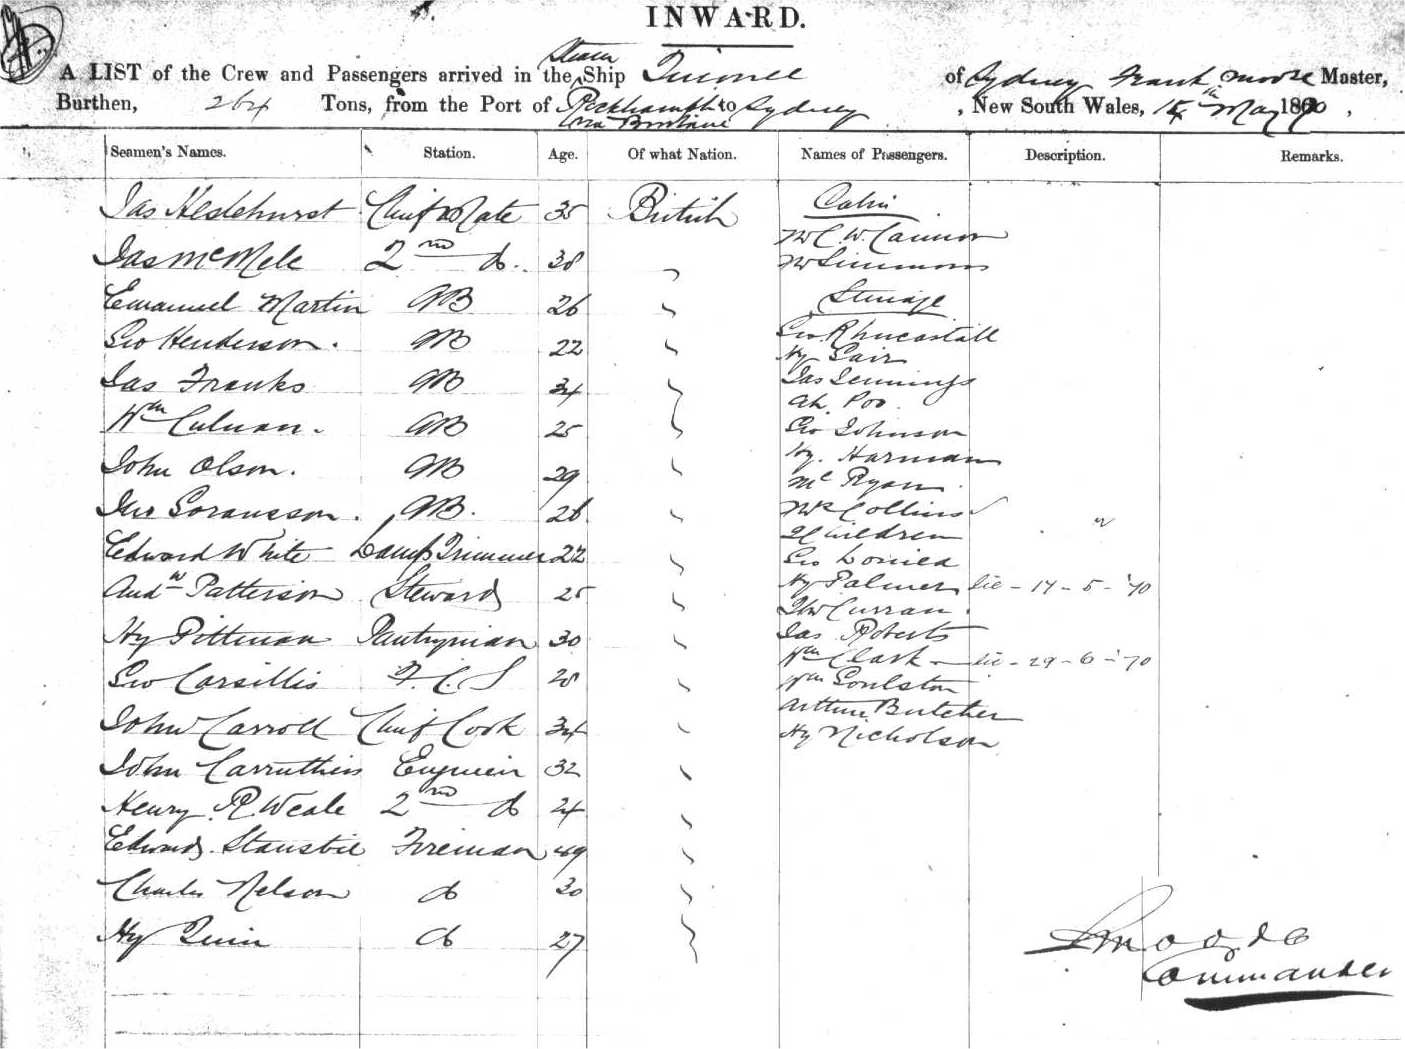 INWARD.
Steam
A LIST of the Crew and Passengers arrived in the Ship of Sydney Frank Moore Master,
Burthen, 264 Tons, from the Port of to Sydney , New South Wales, 15th May 1870 ,
via Brisbane
Seamen's Names. Station. Age. Of what Nation. Names of Passengers. Description. Remarks.
Jas Chief Mate 35 British Cabin
Mr C. W. Cannon
Jas 2nd do. 38 Mr Simmons
Emanuel Martin AB 26 Steerage
Geo Henderson. AB 22 Geo
Hy
Jas Franks AB 34 Jas Jennings
Ah Poo.
Wm AB 25 Geo Johnson
John Olson. AB 29 Hy. Harman
Mc Ryan
Jno Soransson. AB. 26 Mrs Collins
2 Children
Edward White Lamp Trimmer 22 Geo
Andw Patterson Steward 25 Hy Palmer lic - 17 - 5 - '70
Curran.
Hy Pittman Pantryman 30 Jas Roberts
Geo F. C. S 28 Wm Clark - lic - 29 - 6 - '70
Wm Goulston
John Carroll Chief Cook 34 Arthur Butcher
Hy Nicholson
John Carruthers Engineer 32
Henry R. Weale 2nd do 24
Edward Fireman 49
Charles Nelson do 30
Hy Quin do 27
Commander